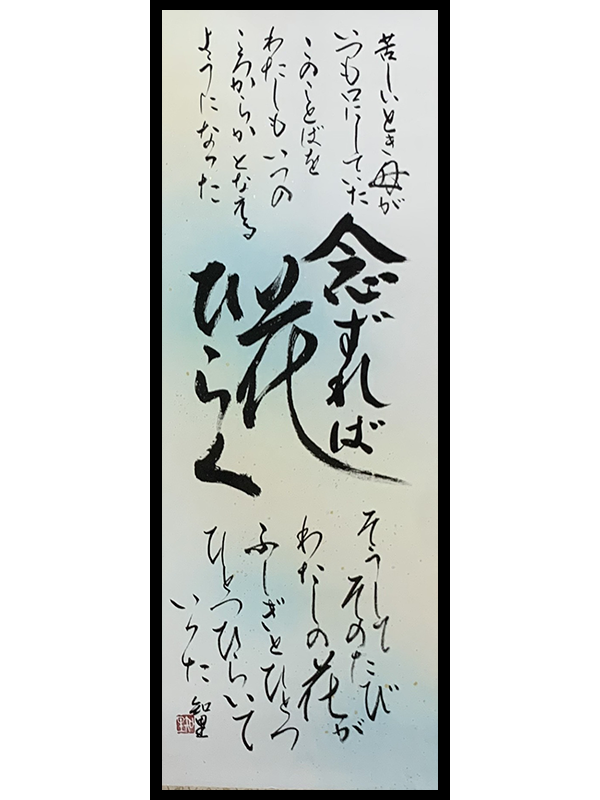 苦しいとき母が
いつも口にしていた
このことばを
わたしもいつの
ころからかとなえる
ようになった
念ずれば
花
ひらく
そうして
そのたび
わたしの花が
ふしぎとひとつ
ひとつひらいて
いった
知里